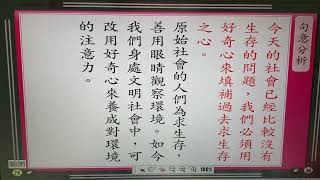 句意分析
今天的社會已經比較沒有
生存的問題，我們必須用
好奇心來填補過去求生存
之心。
原始社會的人們為求生存，
善用眼睛觀察環境。如今
我們身處文明社會中，可
改用好奇心來養成對環境
的注意力。
100%